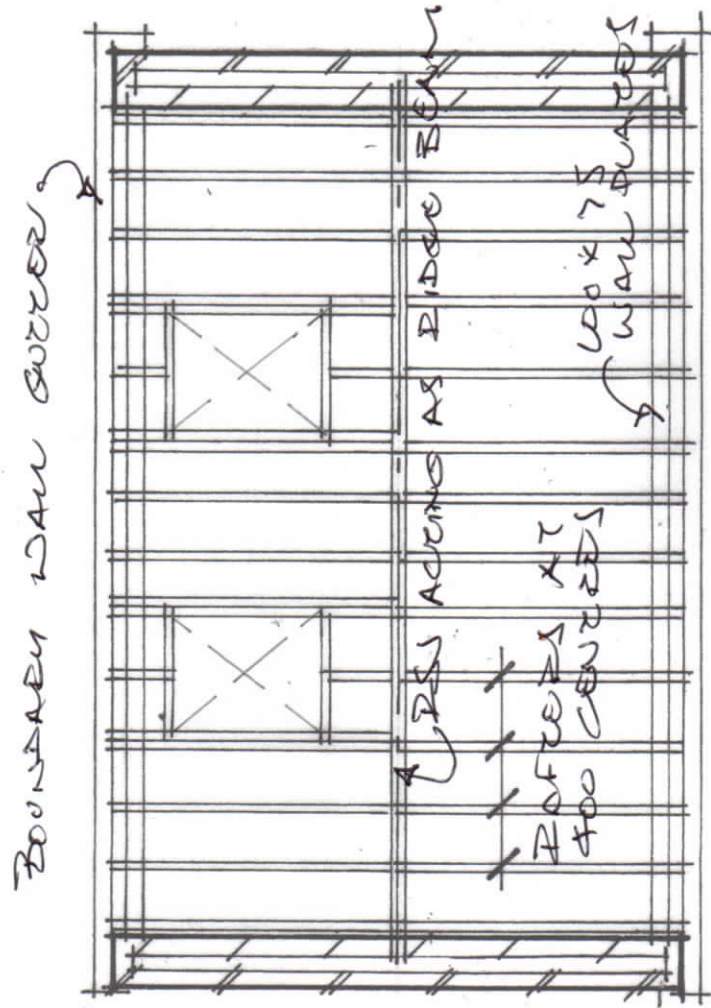 BOUNDARY WALL GUTTER.
RSJ ACTING AS RIDGE BEAM
RAFTERS AT
400 CENTRES
100 x 75
WALL PLATES